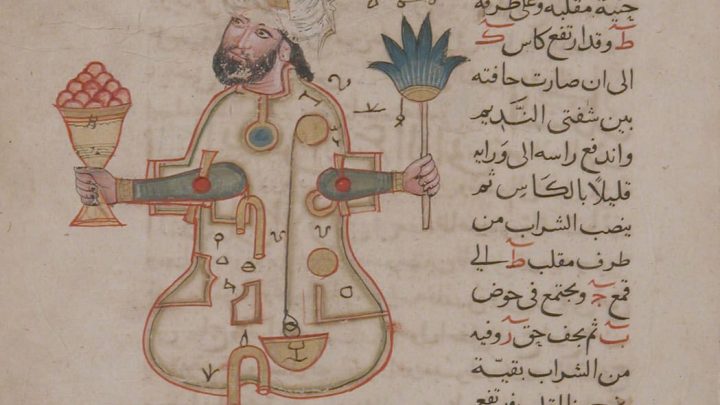 مقلبه وعلى طرفه
ط وقد ارتفع كاس ك
الى ان صارت حافته
بين شفتى النَّديم
واندفع راسه الى ورايه
قليلًا بالكَاسِ ثم
ينصب الشراب من
طرف مقلب ط الي
قمع ويجتمع فى حوض
ثم يجف حق وفيه
من الشراب بقيّة